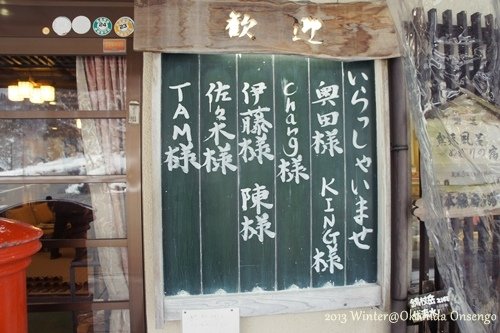 歓迎
いらっしゃいませ
奥田様 KING様
Chang様
伊藤様 陳様
佐々木様
TAM様
2013 Winter@Okuhida Onsengo